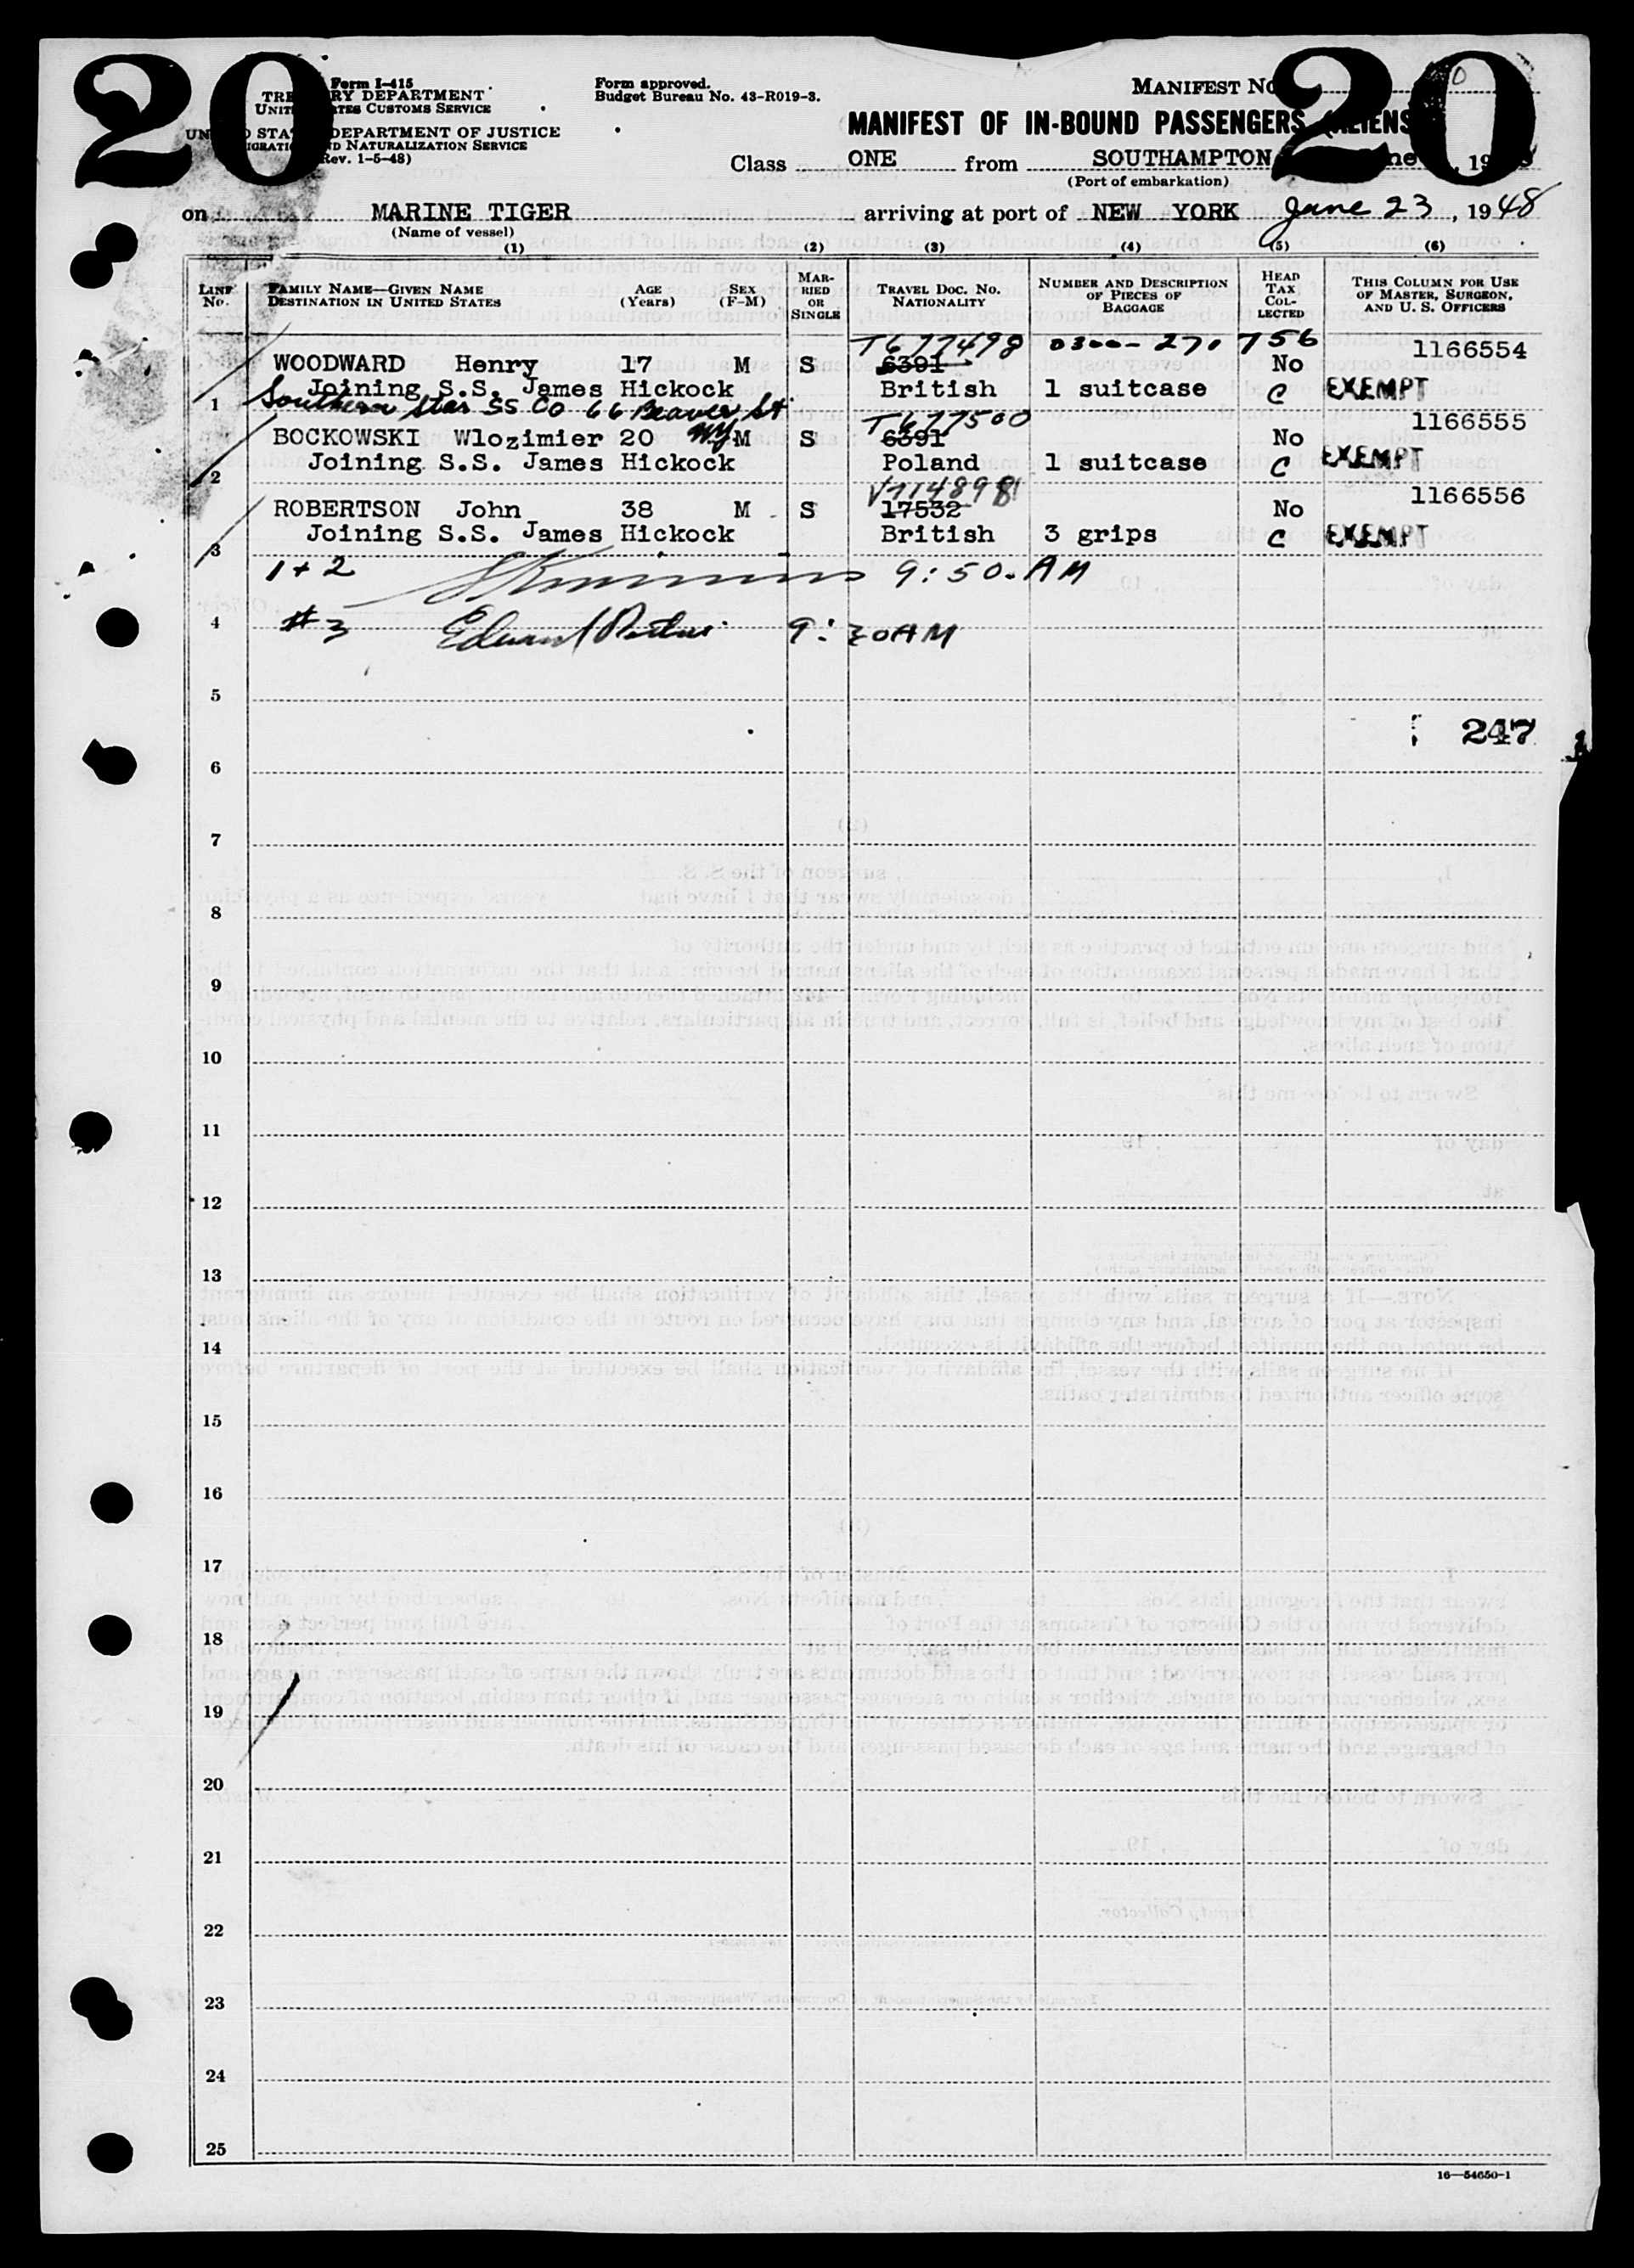 20 20
Form I-415
TREASURY DEPARTMENT
UNITED STATES CUSTOMS SERVICE
UNITED STATES DEPARTMENT OF JUSTICE
IMMIGRATION AND NATURALIZATION SERVICE
(Rev. 1-5-48)
Form approved.
Budget Bureau No. 43-R019-3.
MANIFEST NO.
MANIFEST OF IN-BOUND PASSENGERS (ALIENS)
Class ONE from SOUTHAMPTON , 19
(Port of embarkation)
on MARINE TIGER arriving at port of NEW YORK June 23, 1948
(Name of vessel)
(1) (2) (3) (4) (5) (6)
LINE No. FAMILY NAME—GIVEN NAME DESTINATION IN UNITED STATES AGE (Years) SEX (F-M) MARRIED OR SINGLE TRAVEL DOC. NO. NATIONALITY NUMBER AND DESCRIPTION OF PIECES OF BAGGAGE HEAD TAX COLLECTED THIS COLUMN FOR USE OF MASTER, SURGEON, AND U. S. OFFICERS
T677498 0300-270 756 1166554
WOODWARD Henry 17 M S 6391 No
Joining S.S. James Hickock British 1 suitcase C EXEMPT
1 Southern Star SS Co 66 Beaver St NY
T677500 1166555
BOCKOWSKI Wlozimier 20 M S 6391 No
Joining S.S. James Hickock Poland 1 suitcase C EXEMPT
2
V1148981 1166556
ROBERTSON John 38 M S 17532 No
Joining S.S. James Hickock British 3 grips C EXEMPT
3
1+2 9:50 AM
4 #3 Edward 9:30AM
5
247
6
7
8
9
10
11
12
13
14
15
16
17
18
19
20
21
22
23
24
25
16—54650-1